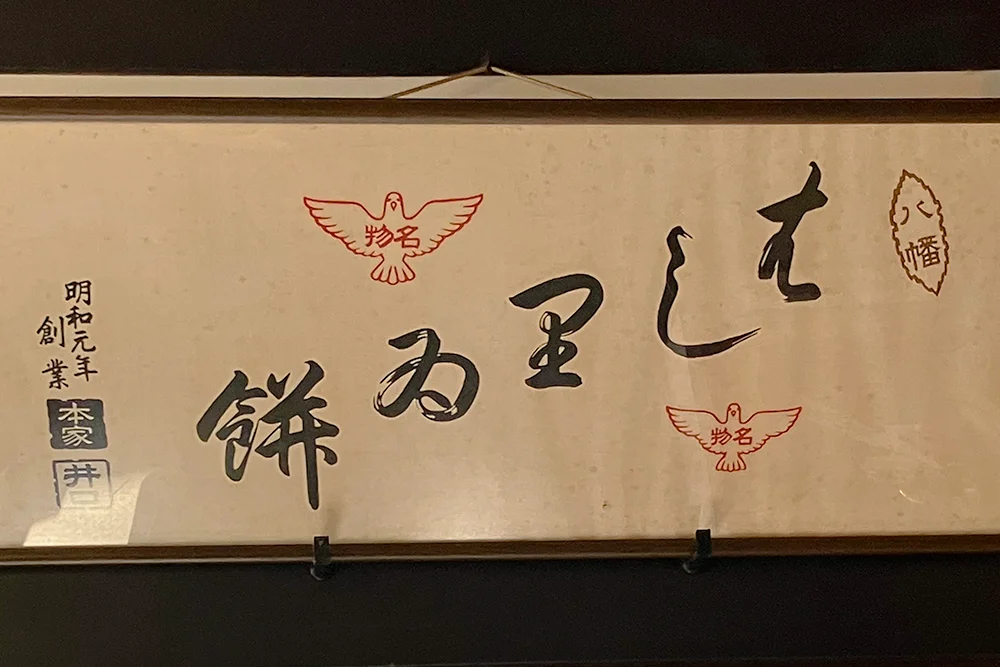 八幡
はし里ゐ餅
名物
名物
明和元年
創業
本家
井口